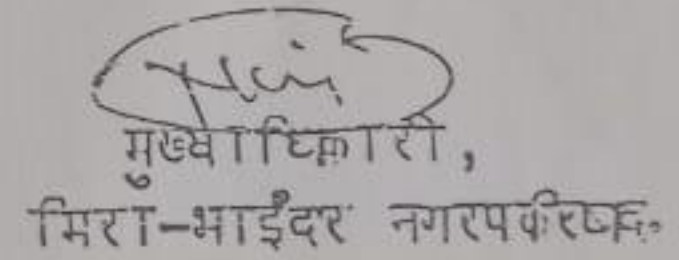 मुख्याधिकारी,
मिरा-भाईंदर नगरपरिषद.